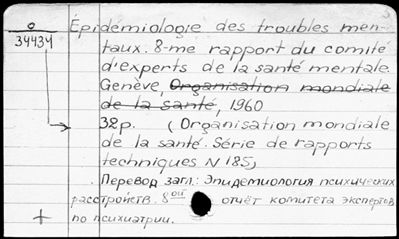 Épidémiologie des troubles men-
taux. 8-me rapport du comité
d'experts de la santé mentale.
Genève, Organisation mondiale
de la santé, 1960
32p. (Organisation mondiale
de la santé. Série de rapports
techniques N 185)
Перевод загл.: Эпидемиология психических
расстройств. 8ой отчёт комитета экспертов
по психиатрии.
34434